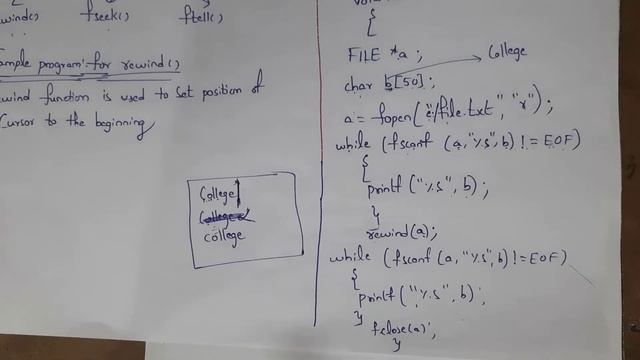 wind() fseek() ftell()
ample program: for rewind()
wind function is used to set position of
Cursor to the beginning
College
college
{
FILE *a ;
College
char b[50];
a = fopen("c/file.txt", "r");
while (fscanf (a, "%s", b) != EOF)
{
printf ("%s", b) ;
}
rewind(a);
while (fscanf (a, "%s", b) != EOF)
{
printf ("%s", b) ;
}
fclose(a);
}